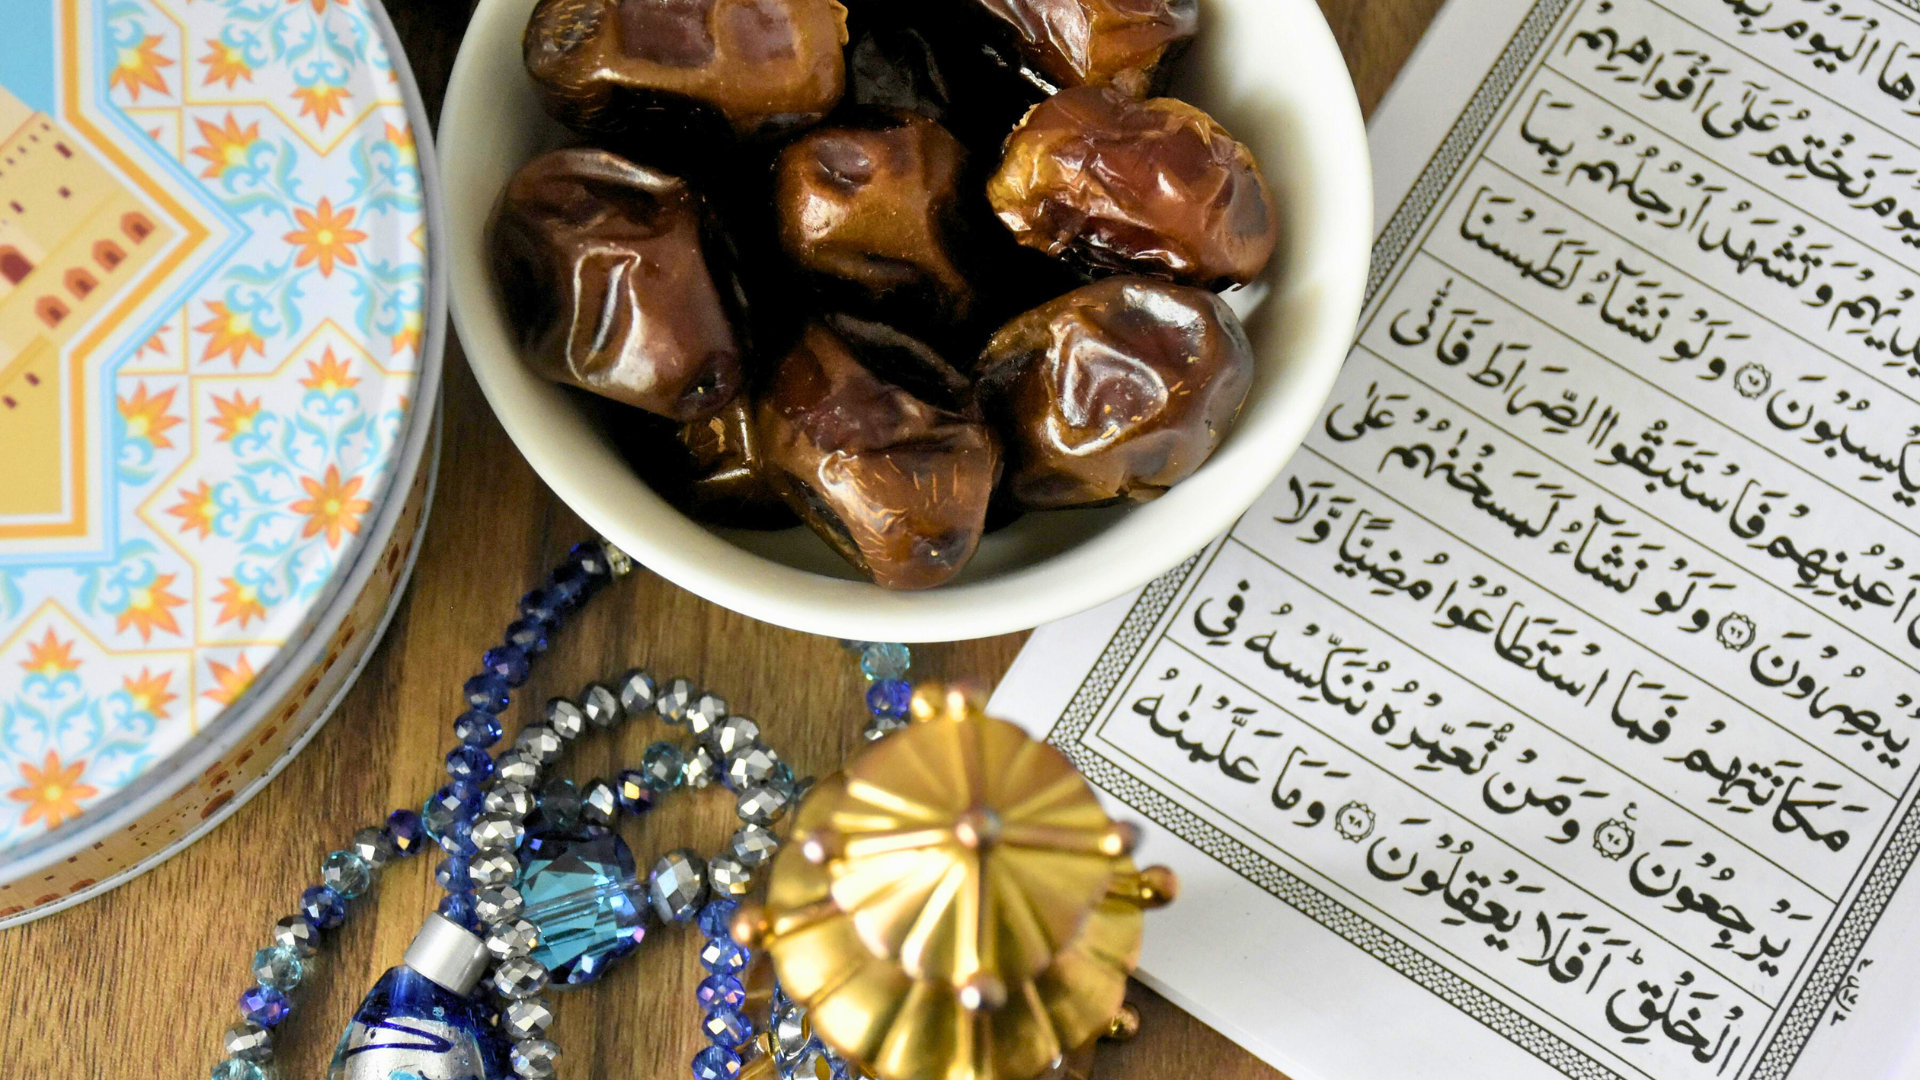 وْهَا الْيَوْمَ بِمَا
الْيَوْمَ نَخْتِمُ عَلٰٓى اَفْوَاهِهِمْ
اَيْدِيْهِمْ وَتَشْهَدُ اَرْجُلُهُمْ بِمَا
يَكْسِبُوْنَ ﴿٦٥﴾ وَلَوْ نَشَآءُ لَطَمَسْنَا
اَعْيُنِهِمْ فَاسْتَبَقُوا الصِّرَاطَ فَاَنّٰى
يُبْصِرُوْنَ ﴿٦٦﴾ وَلَوْ نَشَآءُ لَمَسَخْنٰهُمْ عَلٰى
مَكَانَتِهِمْ فَمَا اسْتَطَاعُوْا مُضِيًّا وَّلَا
يَرْجِعُوْنَ ﴿٦٧﴾ وَمَنْ نُّعَمِّرْهُ نُنَكِّسْهُ فِى
الْخَلْقِ ؕ اَفَلَا يَعْقِلُوْنَ ﴿٦٨﴾ وَمَا عَلَّمْنٰهُ